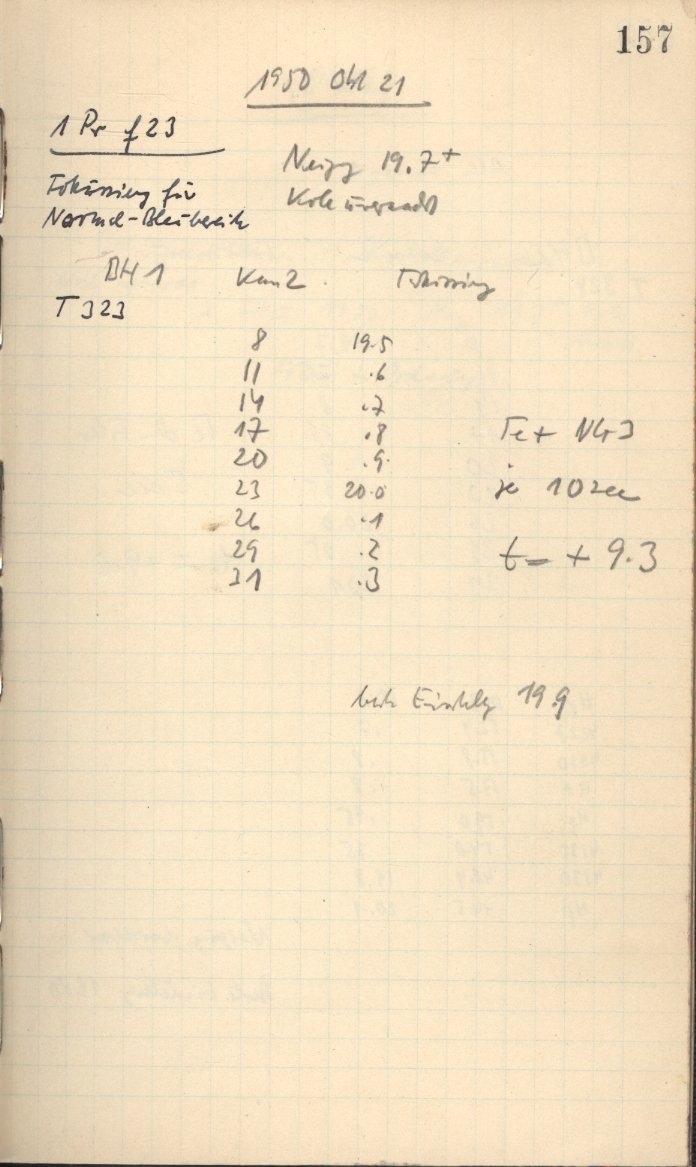 157
1950 Okt 21
1 Pr f 23
Neigg 19.7+
Fokussierg für
Normal-Blaubereich
BH 1 Km 2 Fokussierg
T 323
8 19.5
11 .6
14 .7
17 .8
20 .9
23 20.0
26 .1
29 .2
31 .3
Fe+ VG 3
je 10 sec
t = + 9.3
beste Einstellg 19.9